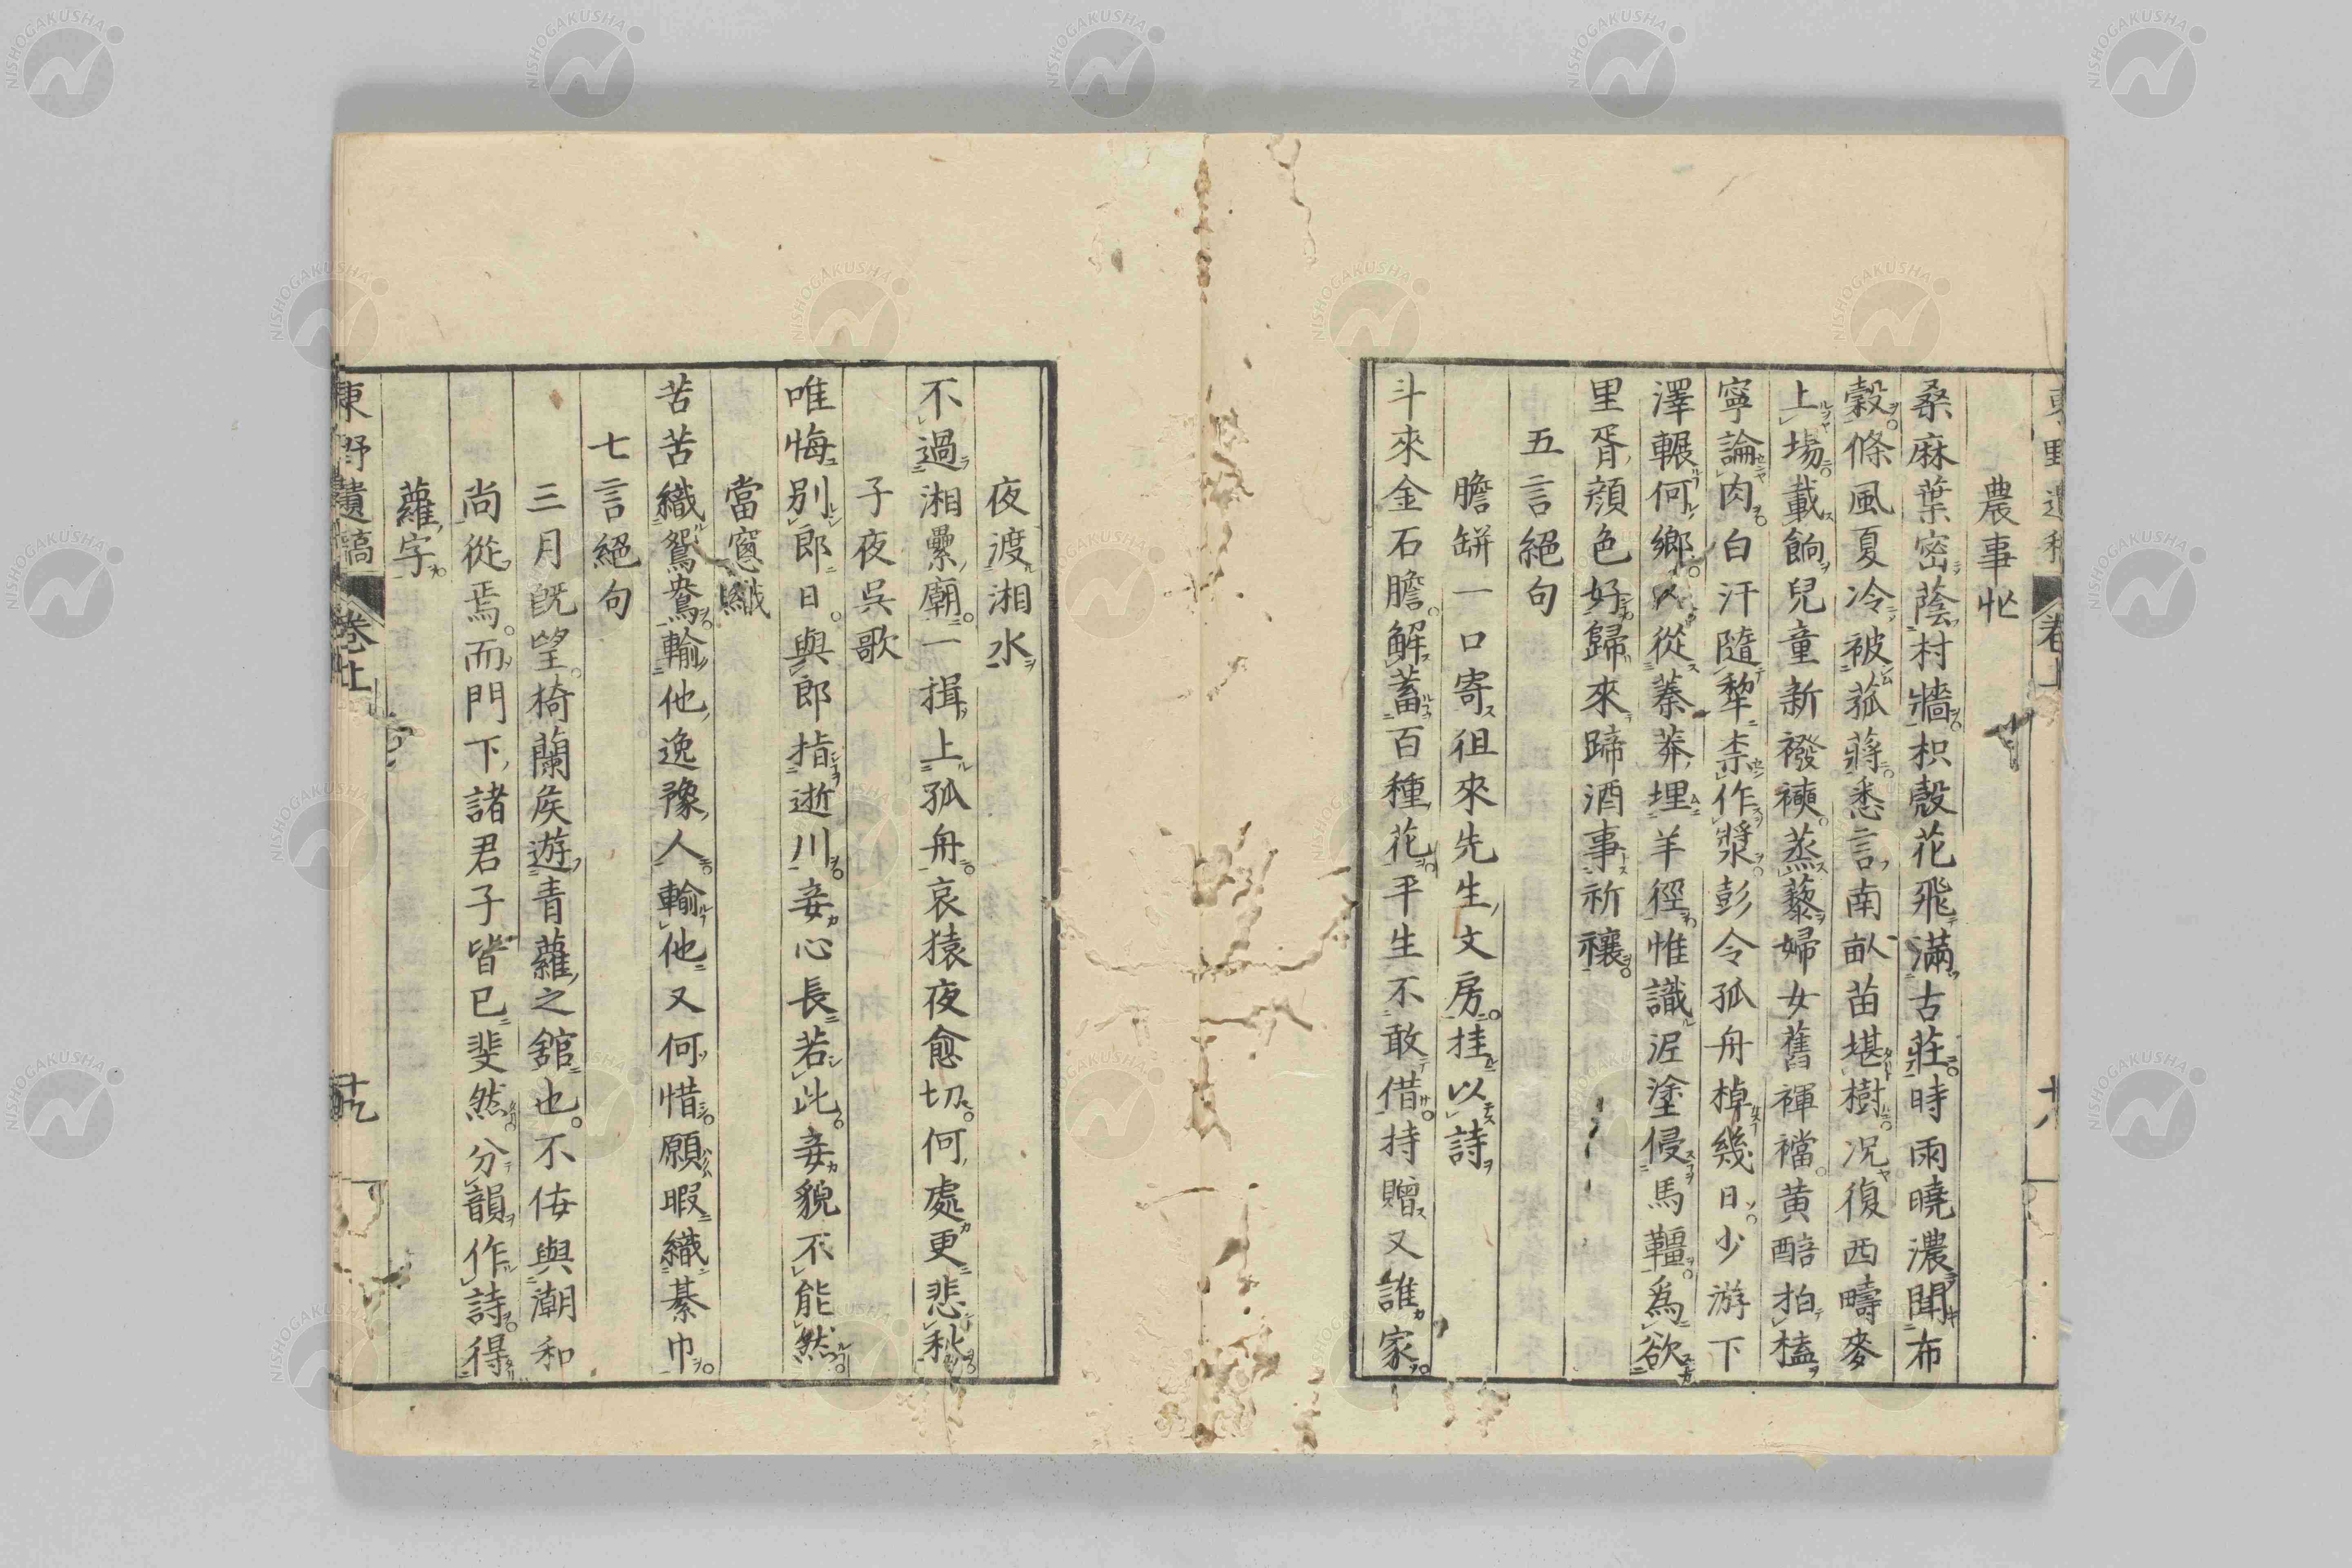 農事忙
桑麻葉密蔭村牆枳殼花飛滿古莊時雨曉濃聞布
穀條風夏冷被菰蔣悉言南畝苗堪樹况復西疇麥
上場載餉兒童新襏襫蒸藜婦女舊褌襠黄醅拍榼
寧論肉白汗隨犂柰作漿彭令孤舟棹幾日少游下
澤輾何鄉久從蓁莽埋羊徑惟識泥塗侵馬韁為欲
里胥顔色好歸來蹄酒事祈禳
五言絕句
膽缾一口寄徂來先生文房挂以詩
斗來金石膽解蓄百種花平生不敢借持贈又誰家
夜渡湘水
不過湘纍廟一揖上孤舟哀猿夜愈切何處更悲秋
子夜吳歌
唯悔别郎日與郎指逝川妾心長若此妾貌不能然
當窓織
苦苦織鴛鴦輸他逸豫人輸他又何惜願暇織綦巾
七言絕句
三月旣望椅蘭矦遊青蘿之舘也不侫與潮和
尚從焉而門下諸君子皆已斐然分韻作詩得
蘿字
東野遺稿 卷上 十九
NISHOGAKUSHA